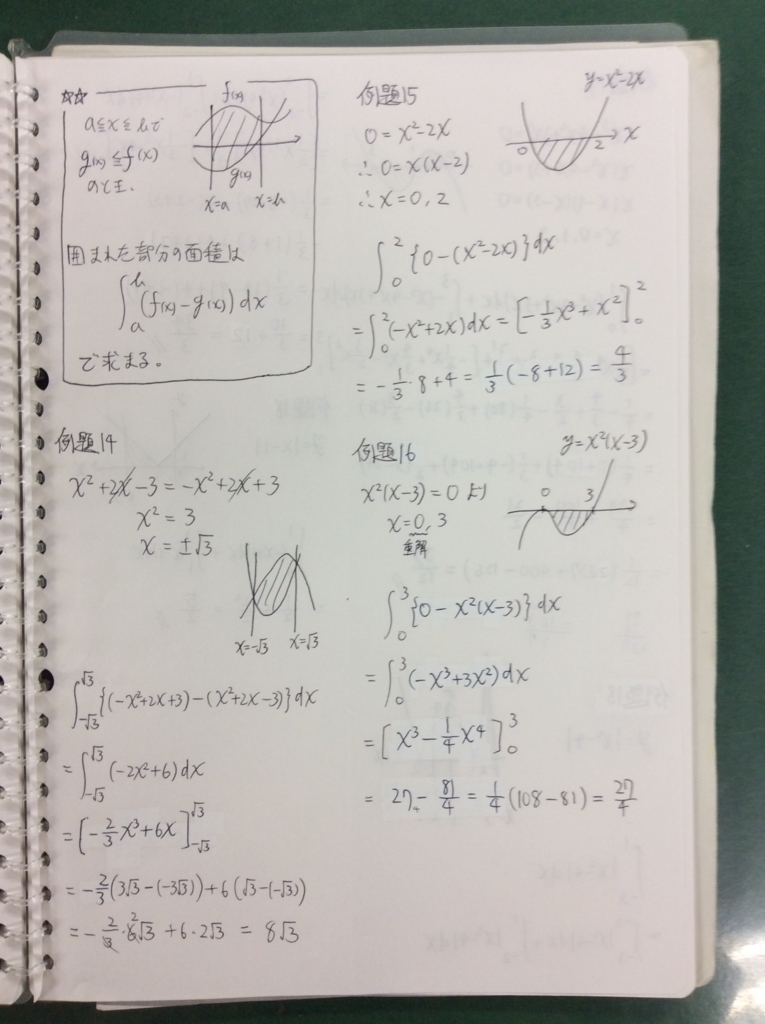 ☆☆
f(x)
a≦x≦bで
g(x)≦f(x)
のとき、
g(x)
x=a x=b
囲まれた部分の面積は
∫_a^b (f(x)-g(x))dx
で求まる。
例題14
x²+2x-3=-x²+2x+3
x²=3
x=±√3
x=-√3 x=√3
∫_{-√3}^{√3} {(-x²+2x+3)-(x²+2x-3)}dx
=∫_{-√3}^{√3} (-2x²+6)dx
=[-2/3 x³+6x]_{-√3}^{√3}
=-2/3(3√3-(-3√3))+6(√3-(-√3))
=-2/3・6√3+6・2√3 = 8√3
例題15
y=x²-2x
0=x²-2x
0 2 x
∴0=x(x-2)
∴x=0,2
∫_0^2 {0-(x²-2x)}dx
=∫_0^2 (-x²+2x)dx=[-1/3 x³+x²]_0^2
=-1/3・8+4=1/3(-8+12)=4/3
例題16
y=x²(x-3)
x²(x-3)=0より
0 3
x=0,3
重解
∫_0^3 {0-x²(x-3)}dx
=∫_0^3 (-x³+3x²)dx
=[x³-1/4 x⁴]_0^3
=27-81/4=1/4(108-81)=27/4